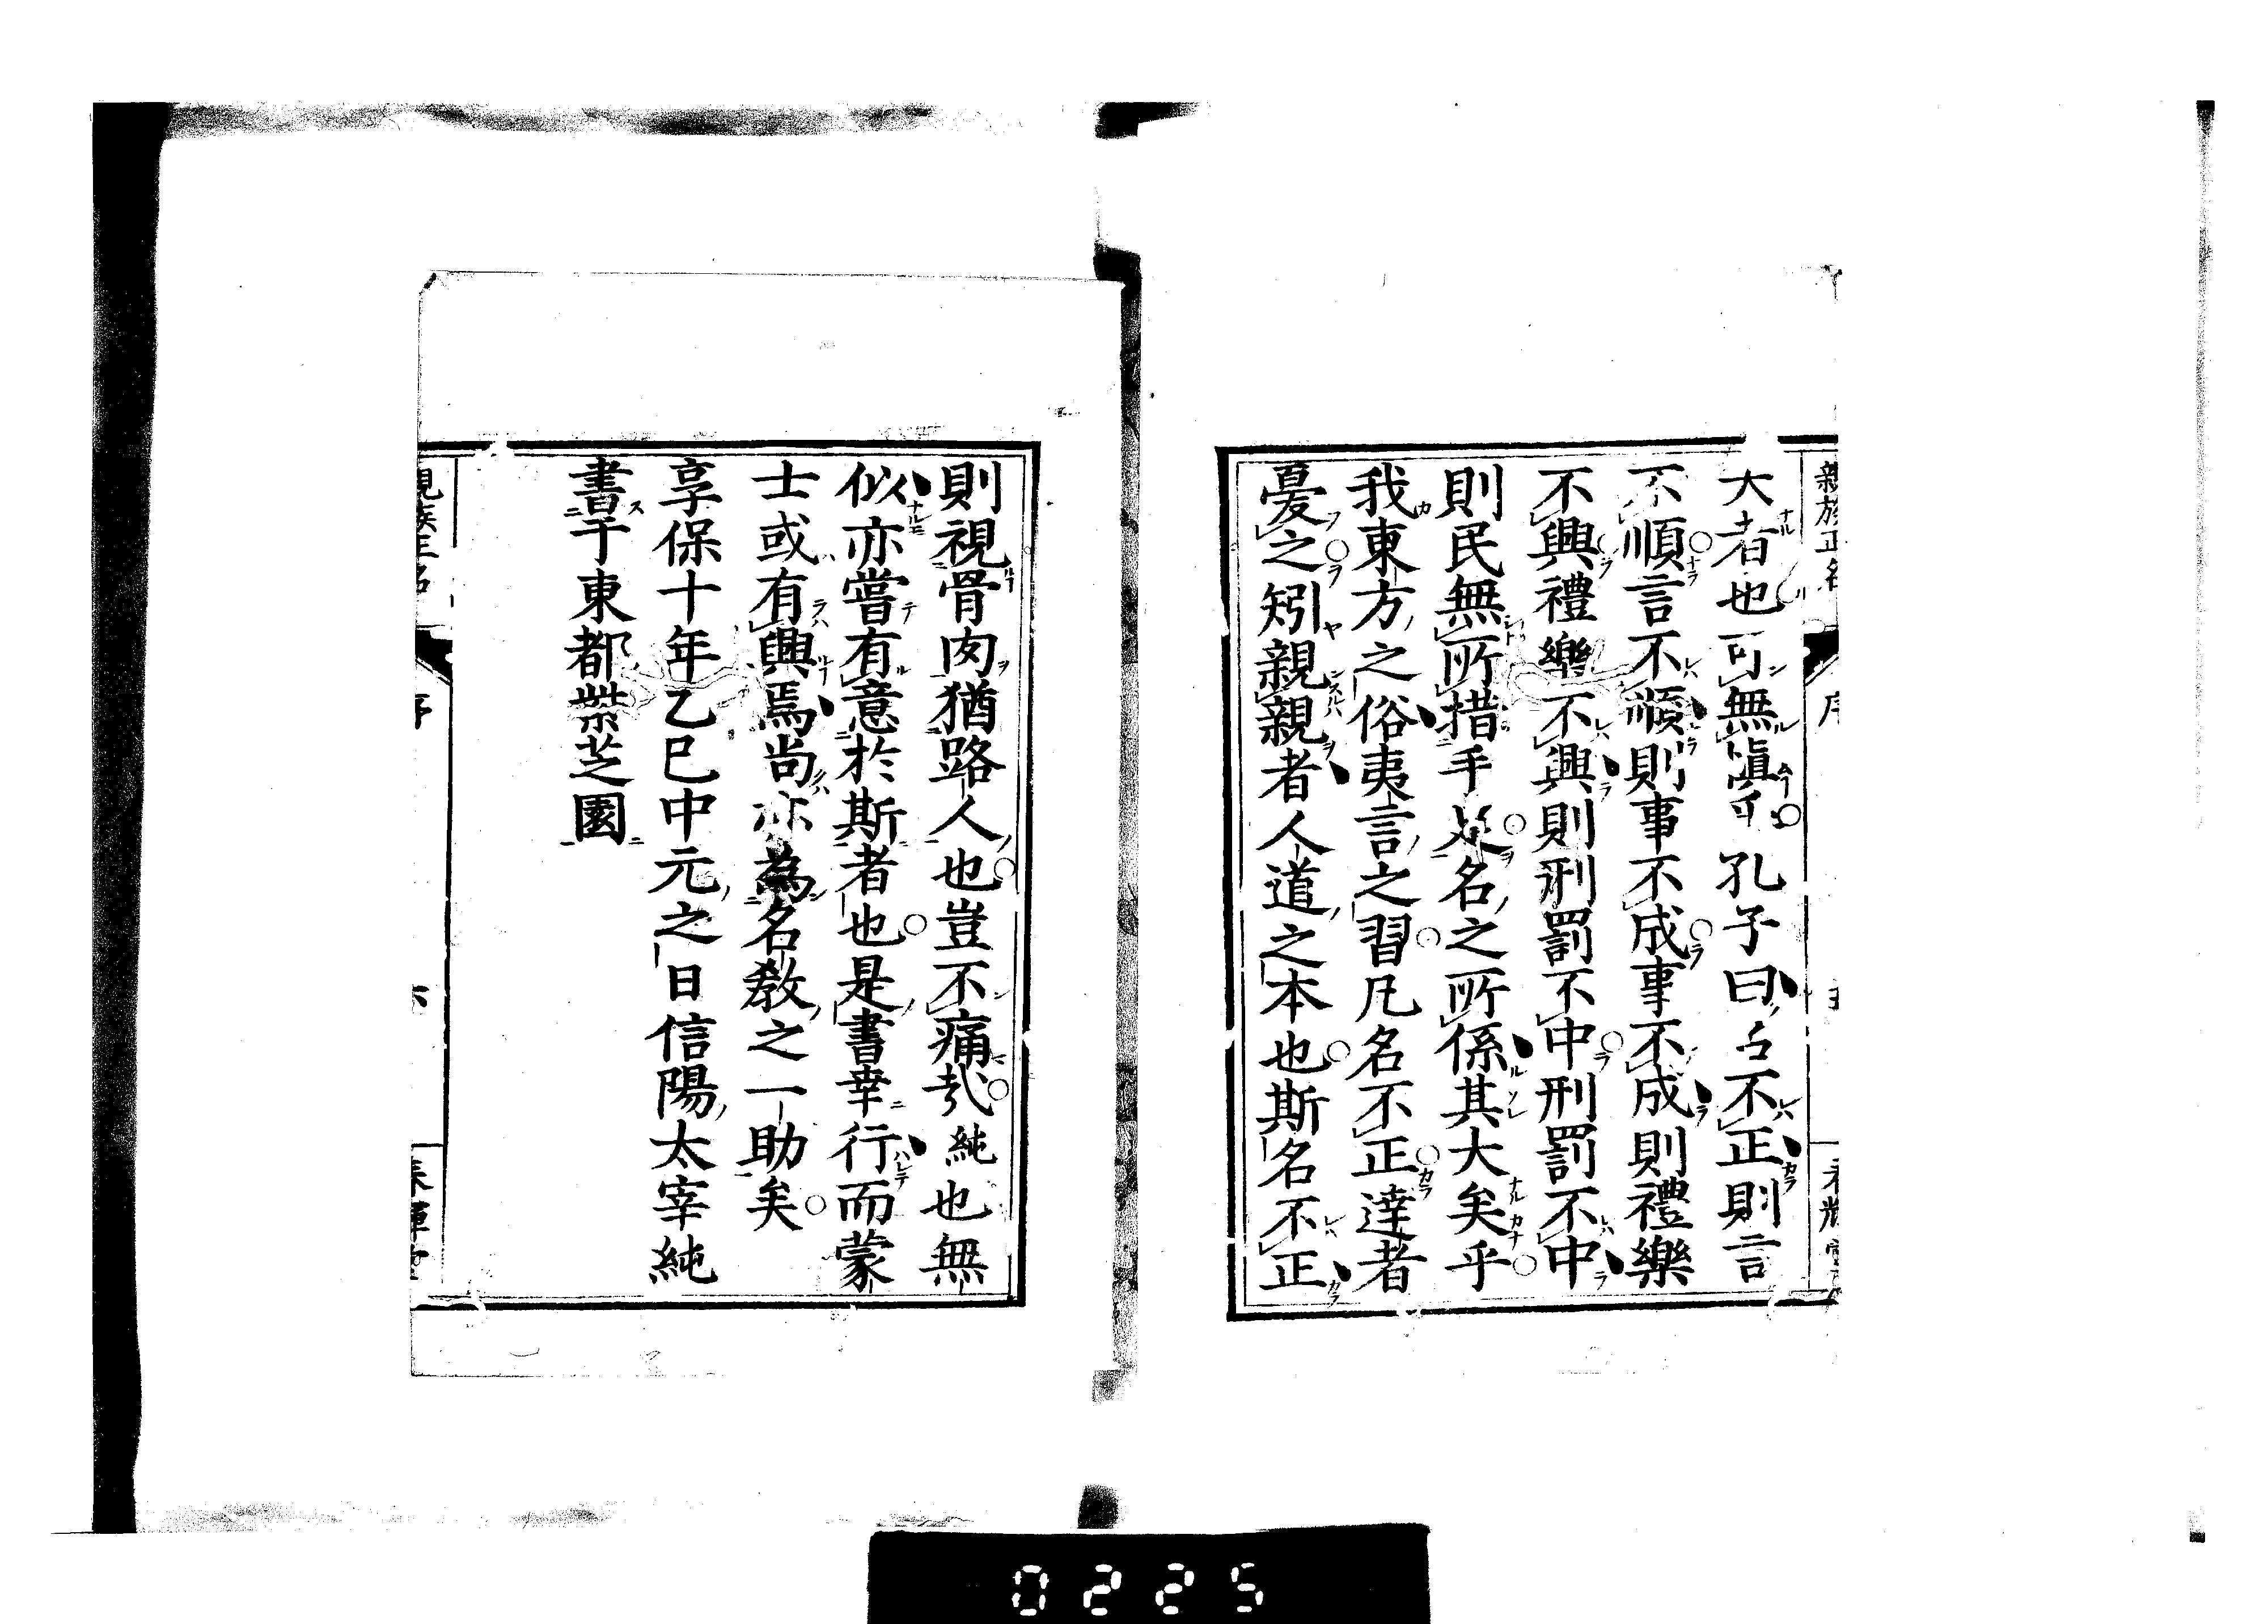 親族正名 序
大者也可無愼乎孔子曰名不正則言
不順言不順則事不成事不成則禮樂
不興禮樂不興則刑罰不中刑罰不中
則民無所措手足名之所係其大矣乎
我東方之俗夷言之習凡名不正達者
憂之矧親親者人道之本也斯名不正
則視骨肉猶路人也豈不痛哉純也無
似亦嘗有意於斯者也是書幸行而蒙
士或有興焉尚亦為名教之一助矣
享保十年乙巳中元之日信陽太宰純
書于東都紫芝園
0225